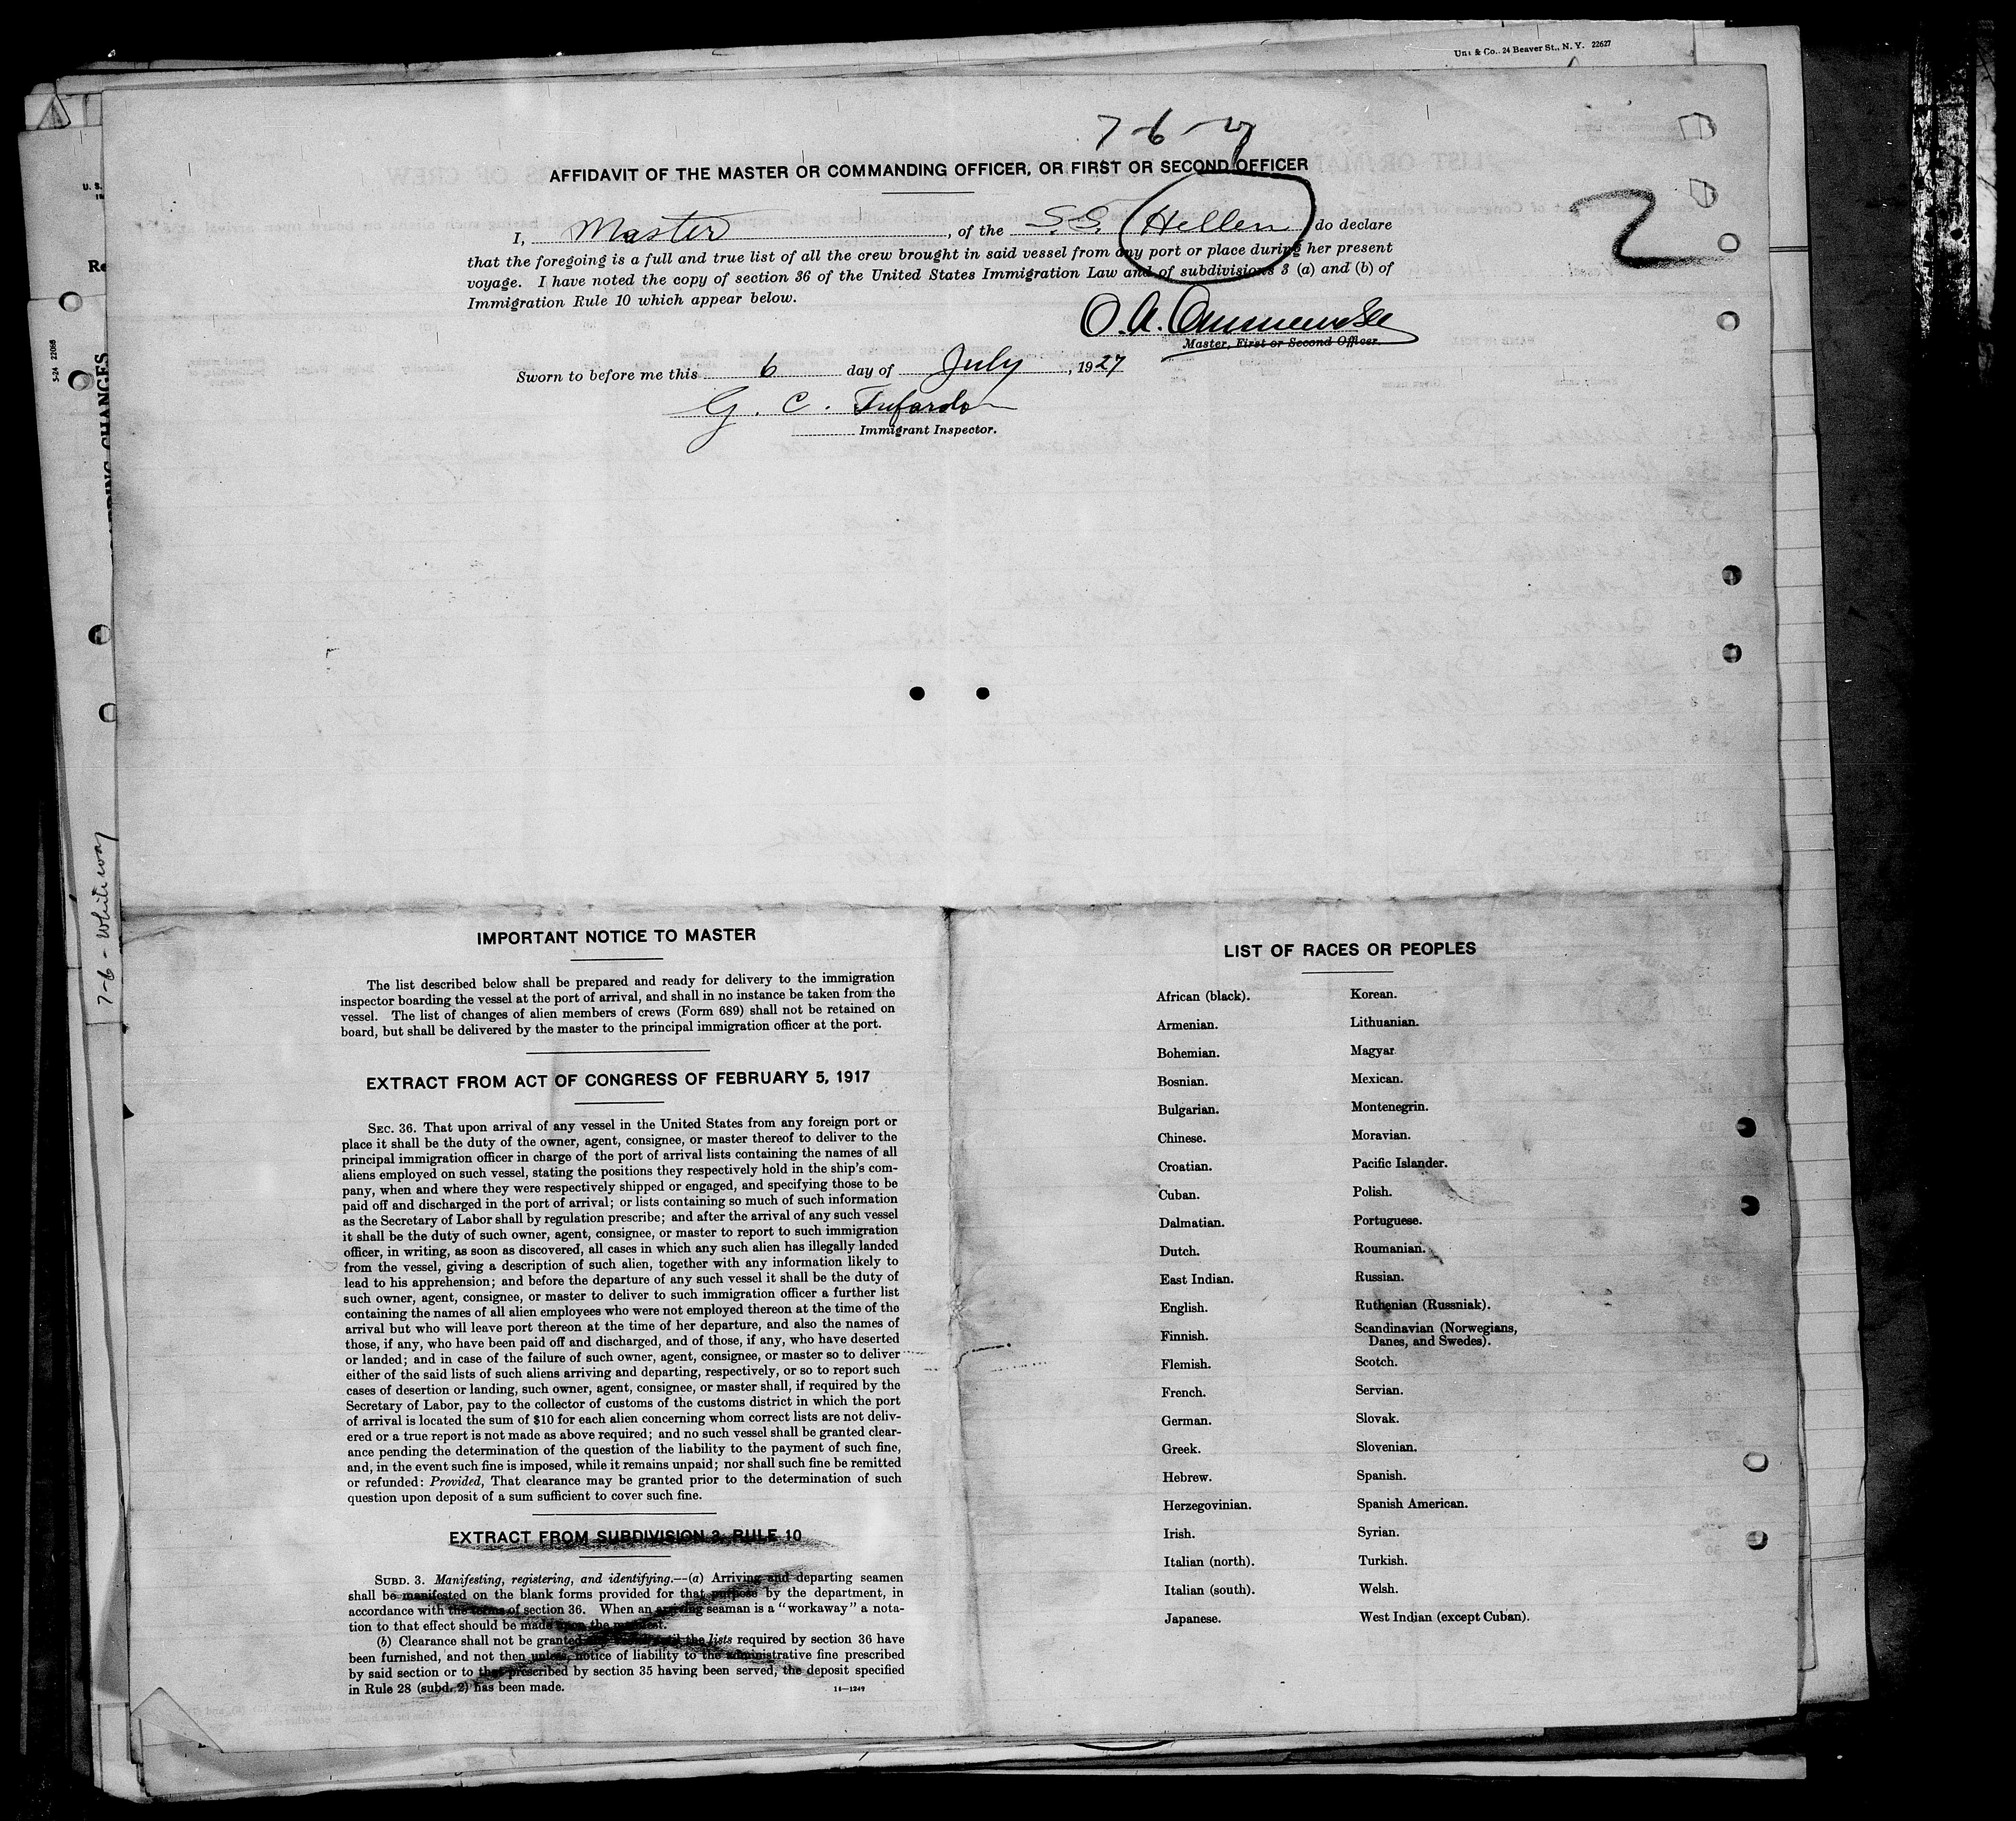 Unz & Co., 24 Beaver St., N. Y. 22627
7-6-27
AFFIDAVIT OF THE MASTER OR COMMANDING OFFICER, OR FIRST OR SECOND OFFICER
I, Master, of the S.S. Hellen do declare
that the foregoing is a full and true list of all the crew brought in said vessel from any port or place during her present
voyage. I have noted the copy of section 36 of the United States Immigration Law and of subdivisions 3 (a) and (b) of
Immigration Rule 10 which appear below.
2
O. A.
Master, First or Second Officer.
Sworn to before me this 6 day of July, 1927
G. C.
Immigrant Inspector.
7-6- Whiteway
5-24 22068
IMPORTANT NOTICE TO MASTER
The list described below shall be prepared and ready for delivery to the immigration
inspector boarding the vessel at the port of arrival, and shall in no instance be taken from the
vessel. The list of changes of alien members of crews (Form 689) shall not be retained on
board, but shall be delivered by the master to the principal immigration officer at the port.
EXTRACT FROM ACT OF CONGRESS OF FEBRUARY 5, 1917
SEC. 36. That upon arrival of any vessel in the United States from any foreign port or
place it shall be the duty of the owner, agent, consignee, or master thereof to deliver to the
principal immigration officer in charge of the port of arrival lists containing the names of all
aliens employed on such vessel, stating the positions they respectively hold in the ship's com-
pany, when and where they were respectively shipped or engaged, and specifying those to be
paid off and discharged in the port of arrival; or lists containing so much of such information
as the Secretary of Labor shall by regulation prescribe; and after the arrival of any such vessel
it shall be the duty of such owner, agent, consignee, or master to report to such immigration
officer, in writing, as soon as discovered, all cases in which any such alien has illegally landed
from the vessel, giving a description of such alien, together with any information likely to
lead to his apprehension; and before the departure of any such vessel it shall be the duty of
such owner, agent, consignee, or master to deliver to such immigration officer a further list
containing the names of all alien employees who were not employed thereon at the time of the
arrival but who will leave port thereon at the time of her departure, and also the names of
those, if any, who have been paid off and discharged, and of those, if any, who have deserted
or landed; and in case of the failure of such owner, agent, consignee, or master so to deliver
either of the said lists of such aliens arriving and departing, respectively, or so to report such
cases of desertion or landing, such owner, agent, consignee, or master shall, if required by the
Secretary of Labor, pay to the collector of customs of the customs district in which the port
of arrival is located the sum of $10 for each alien concerning whom correct lists are not deliv-
ered or a true report is not made as above required; and no such vessel shall be granted clear-
ance pending the determination of the question of the liability to the payment of such fine,
and, in the event such fine is imposed, while it remains unpaid; nor shall such fine be remitted
or refunded: Provided, That clearance may be granted prior to the determination of such
question upon deposit of a sum sufficient to cover such fine.
EXTRACT FROM SUBDIVISION 3, RULE 10
SUBD. 3. Manifesting, registering, and identifying.—(a) Arriving and departing seamen
shall be manifested on the blank forms provided for that purpose by the department, in
accordance with the terms of section 36. When an arriving seaman is a "workaway" a nota-
tion to that effect should be made upon the manifest.
(b) Clearance shall not be granted any vessel until the lists required by section 36 have
been furnished, and not then unless, notice of liability to the administrative fine prescribed
by said section or to that prescribed by section 35 having been served, the deposit specified
in Rule 28 (subd. 2) has been made.
14—1249
LIST OF RACES OR PEOPLES
African (black).
Armenian.
Bohemian.
Bosnian.
Bulgarian.
Chinese.
Croatian.
Cuban.
Dalmatian.
Dutch.
East Indian.
English.
Finnish.
Flemish.
French.
German.
Greek.
Hebrew.
Herzegovinian.
Irish.
Italian (north).
Italian (south).
Japanese.
Korean.
Lithuanian.
Magyar
Mexican.
Montenegrin.
Moravian.
Pacific Islander.
Polish.
Portuguese.
Roumanian.
Russian.
Ruthenian (Russniak).
Scandinavian (Norwegians,
Danes, and Swedes).
Scotch.
Servian.
Slovak.
Slovenian.
Spanish.
Spanish American.
Syrian.
Turkish.
Welsh.
West Indian (except Cuban).